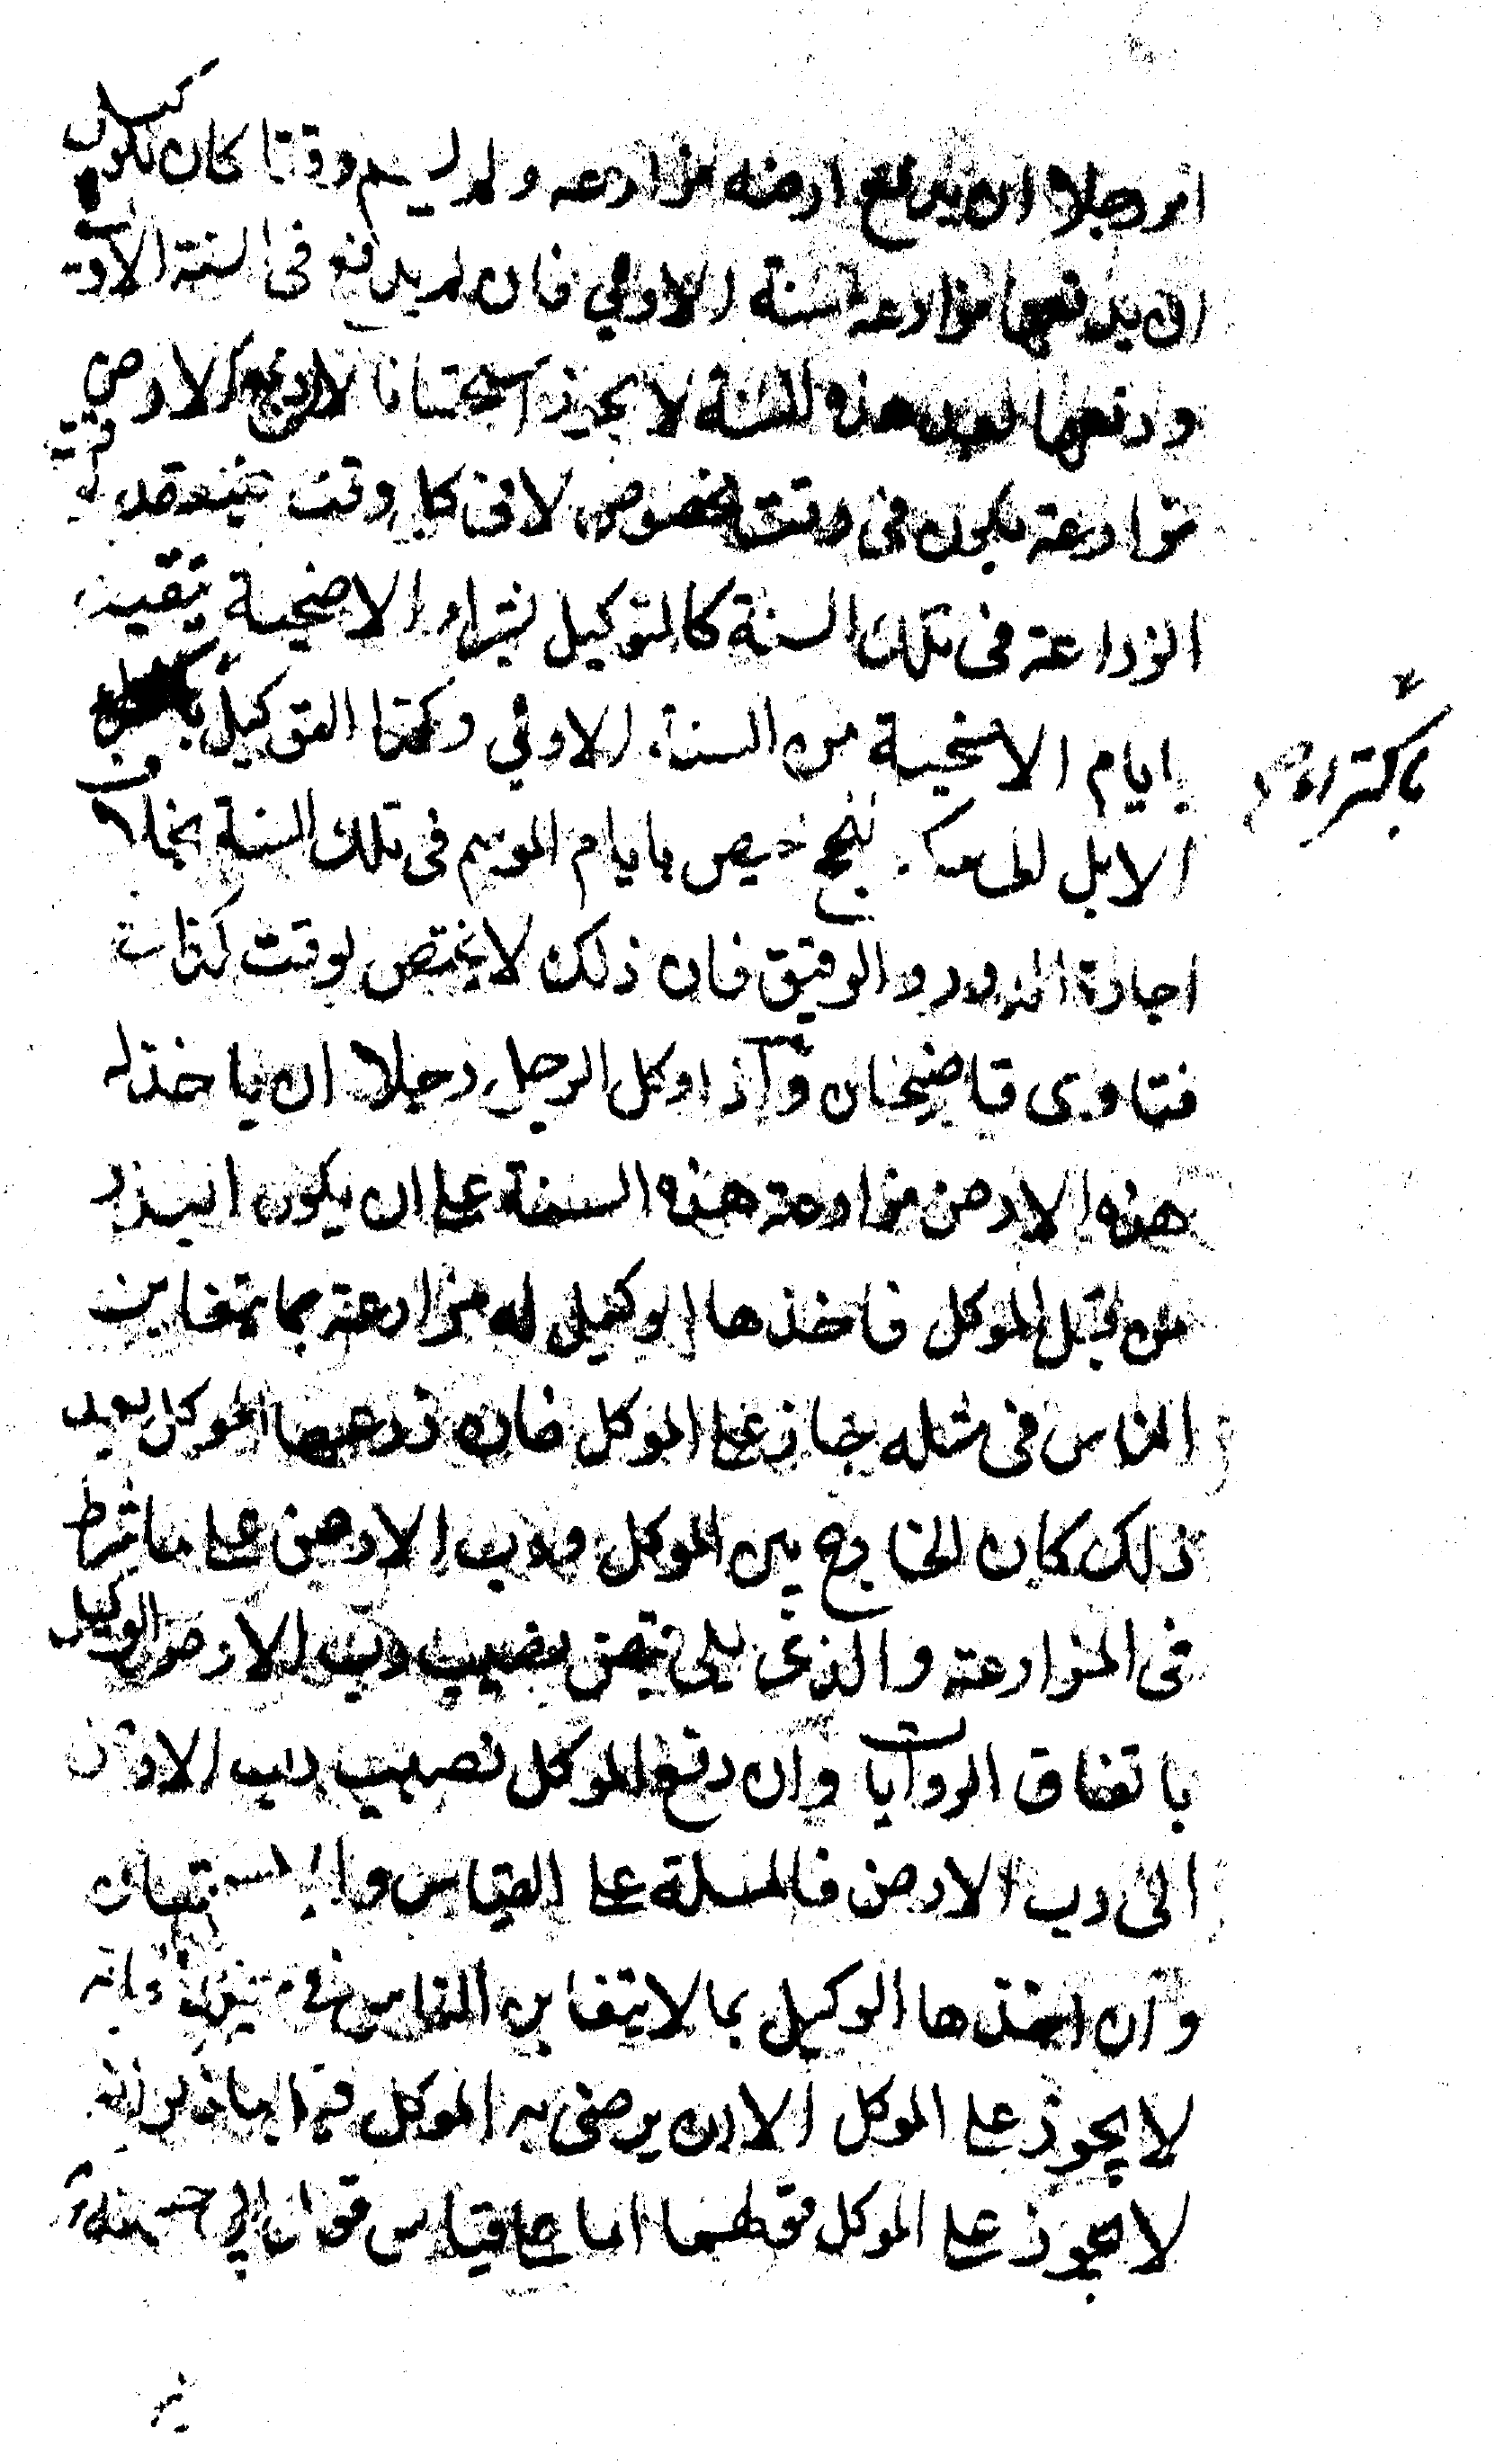 امر رجلا ان يدفع ارضه مزارعه ولم يسم وقتا كان للوكيل
ان يدفعها مزارعة السنة الاولي فان لم يدفع في السنة الاولي
ودفعها بعد هذه السنة لا يجوز استحسانا لان دفع الارض
مزارعة يكون في وقت مخصوص لا في كل وقت فيتقيد بوقت
الزراعة في تلك السنة كالتوكيل بشراء الاضحية يتقيد
بايام الاضحية من السنة الاولي وكذا التوكيل باكتراء
الابل لمكة للحج يختص بايام الموسم في تلك السنة بخلاف
اجارة الدور والرقيق فان ذلك لا يختص بوقت كذا في
فتاوى قاضيخان واذا وكل الرجل رجلا ان ياخذ له
هذه الارض مزارعة هذه السنة على ان يكون البذر
من قبل الموكل فاخذها الوكيل له مزارعة بما يتغابن
الناس في مثله جاز على الموكل فان زرعها الموكل بعد
ذلك كان الخارج بين الموكل ورب الارض على ما شرط
في المزارعة والذي يلي قبض نصيب رب الارض الوكيل
باتفاق الروايات وان دفع الموكل نصيب رب الارض
الى رب الارض فالمسلة على القياس والاستحسان
وان اخذها الوكيل بما لا يتغابن الناس في
لا يجوز على الموكل الا ان يرضى به الموكل
لا يجوز على الموكل قولهما اما على قياس قول ابي حنيفة
باكتراء